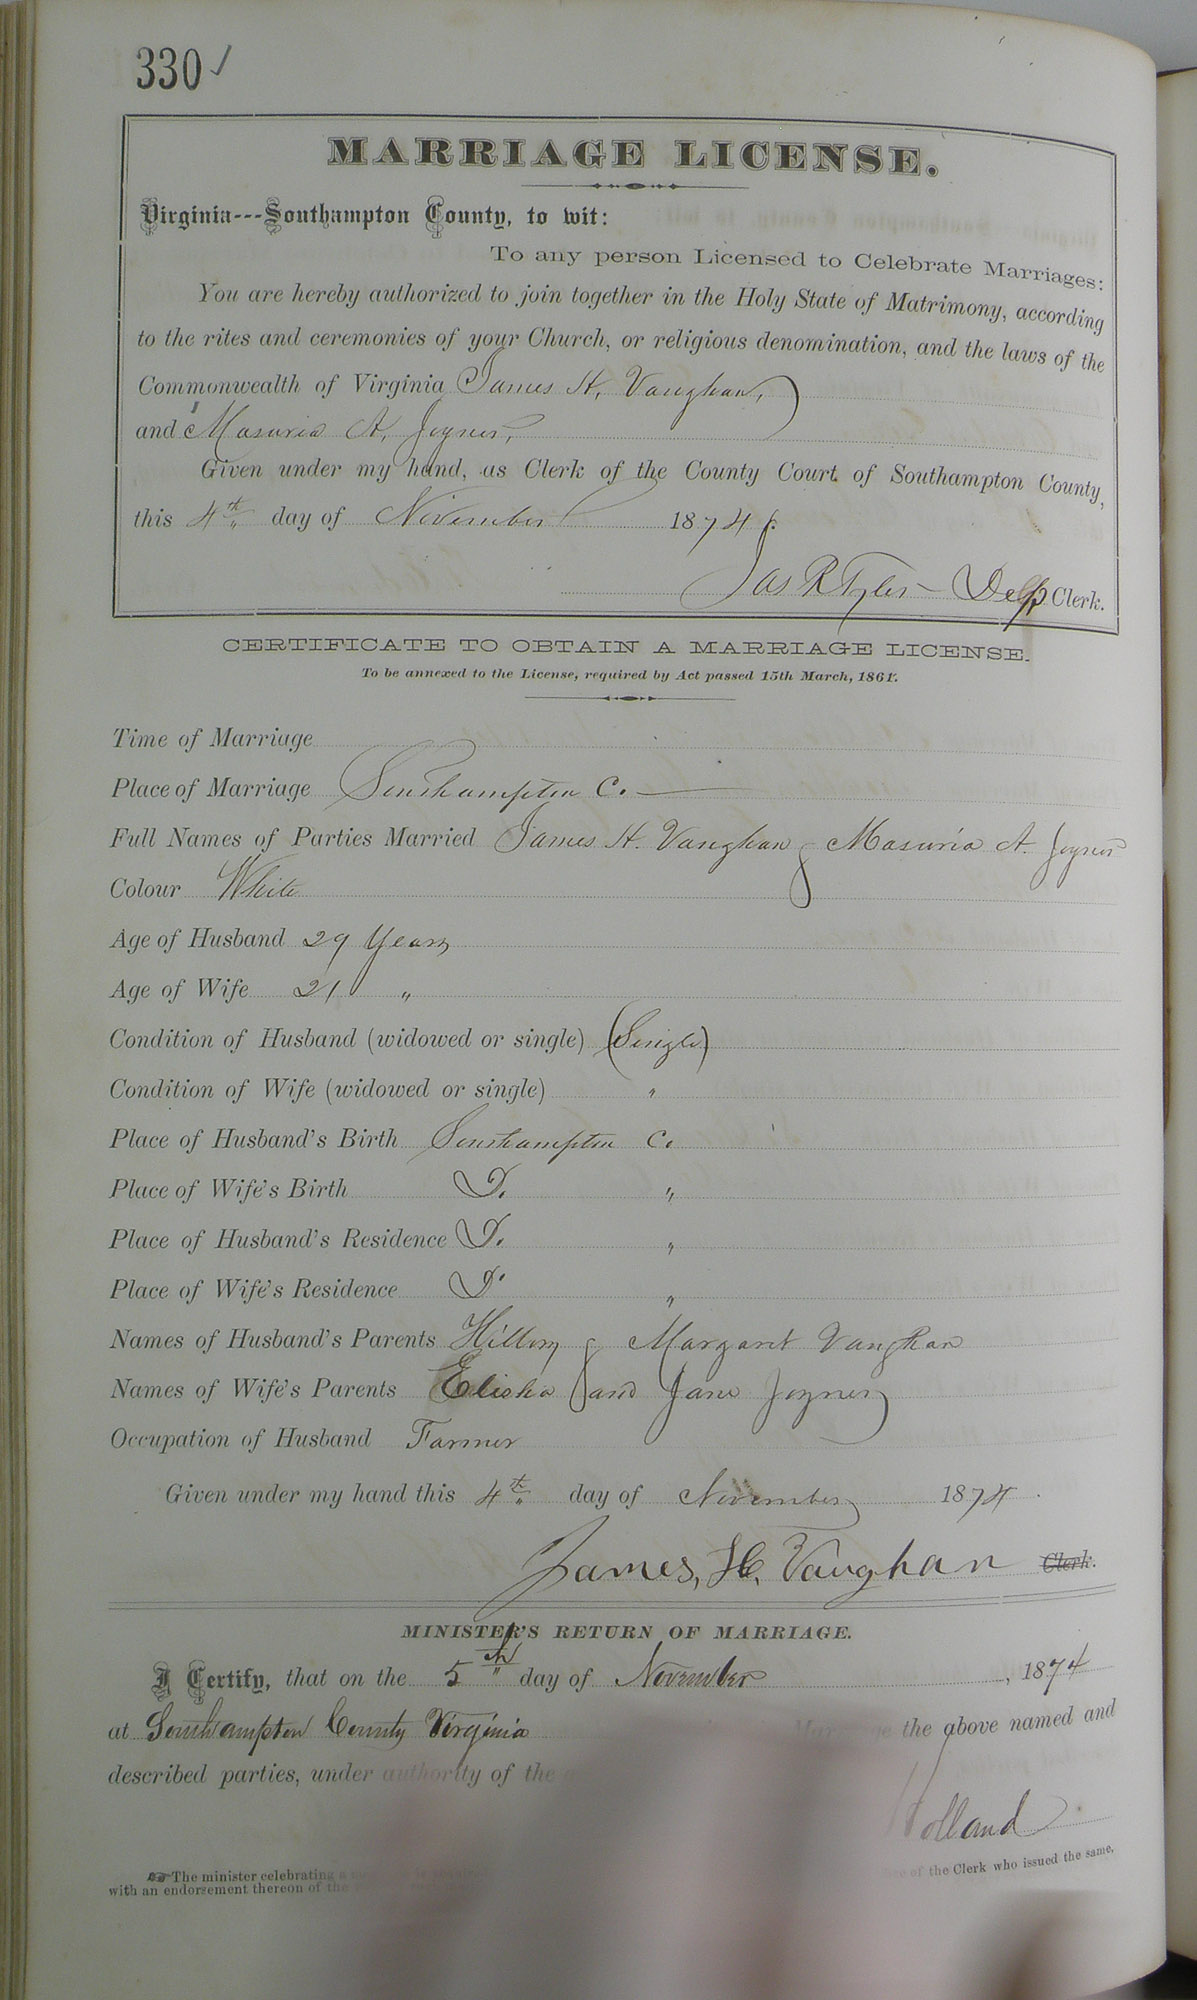 330 ✓
MARRIAGE LICENSE.
Virginia---Southampton County, to wit:
To any person Licensed to Celebrate Marriages:
You are hereby authorized to join together in the Holy State of Matrimony, according
to the rites and ceremonies of your Church, or religious denomination, and the laws of the
Commonwealth of Virginia James H. Vaughan,
and Masuria A. Joyner,
Given under my hand, as Clerk of the County Court of Southampton County,
this 4th day of November 1874.
Jas R Tyler - Dep Clerk.
CERTIFICATE TO OBTAIN A MARRIAGE LICENSE.
To be annexed to the License, required by Act passed 15th March, 1861.
Time of Marriage
Place of Marriage Southampton C.
Full Names of Parties Married James H. Vaughan & Masuria A. Joyner
Colour White
Age of Husband 29 Years
Age of Wife 21 "
Condition of Husband (widowed or single) (Single)
Condition of Wife (widowed or single) "
Place of Husband's Birth Southampton C.
Place of Wife's Birth D. "
Place of Husband's Residence D. "
Place of Wife's Residence D. "
Names of Husband's Parents Hillory & Margaret Vaughan
Names of Wife's Parents Elisha and Jane Joyner
Occupation of Husband Farmer
Given under my hand this 4th day of November 1874.
James, H. Vaughan Clerk.
MINISTER'S RETURN OF MARRIAGE.
I Certify, that on the 5th day of November, 1874
at Southampton County Virginia the above named and
described parties, under authority of the
Holland
The minister celebrating a of the Clerk who issued the same,
with an endorsement thereon of the